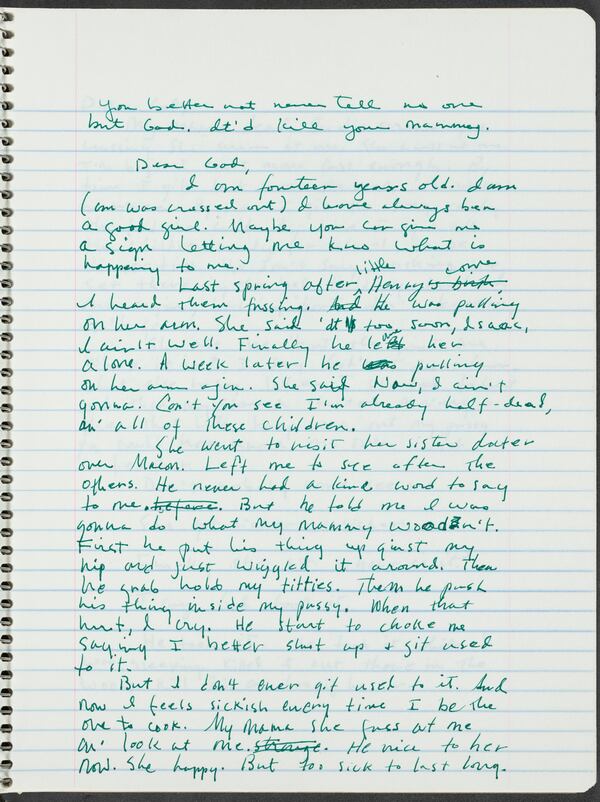 You better not never tell no one
but God. It'd kill your mammy.
Dear God,
I am fourteen years old. I am
(am was crossed out) I have always been
a good girl. Maybe you can give me
a sign letting me know what is
happening to me.
Last spring after little Henry come
I heard them fussing. He was pulling
on her arm. She said It too soon,
I ain't well. Finally he leave her
alone. A week later he pulling
on her arm agin. She said Naw, I ain't
gonna. Can't you see I'm already half-dead,
an' all of these children.
She went to visit her sister dater
over Macon. Left me to see after the
others. He never had a kine word to say
to me. But he told me I was
gonna do what my mammy wouldn't.
[omitted]
hurt, I cry. He start to choke me
saying I better shut up & git used
to it.
But I don't ever git used to it. And
now I feels sickish every time I be the
one to cook. My mama she fuss at me
an' look at me. He nice to her
now. She happy. But too sick to last long.